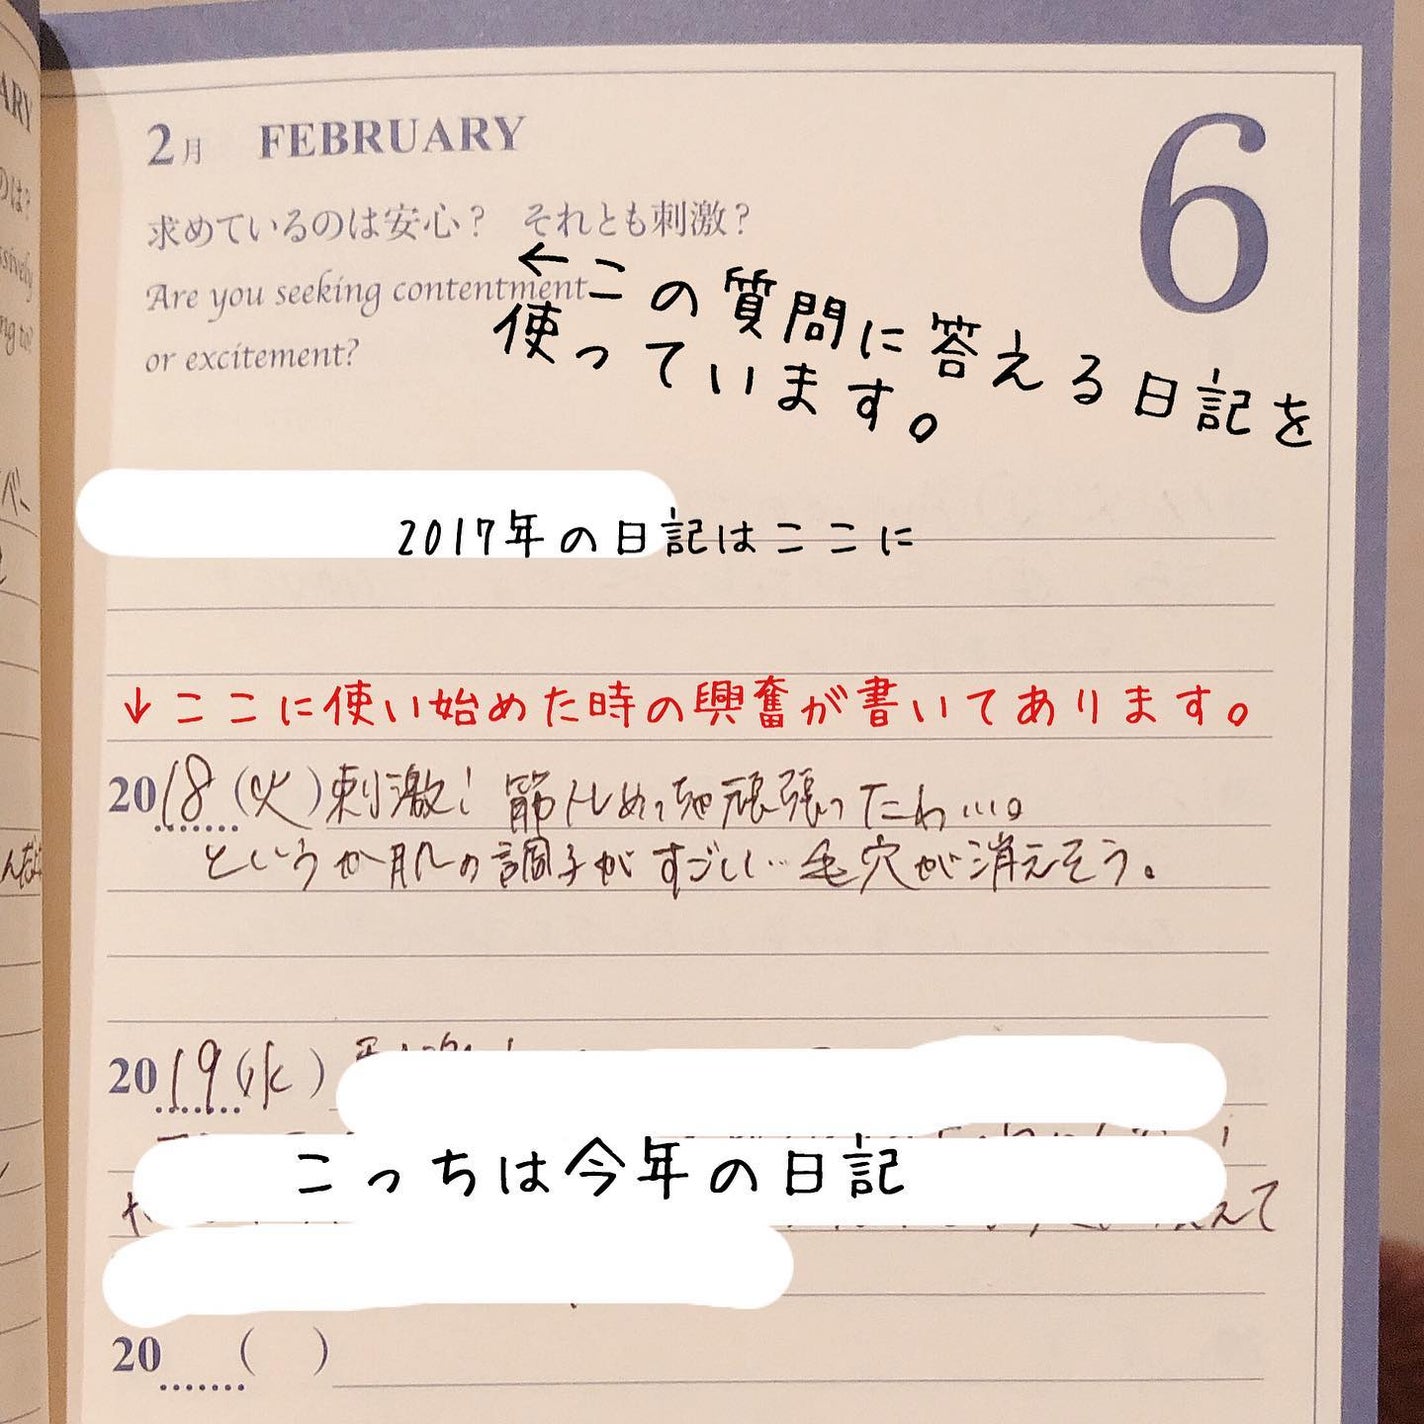 2月 FEBRUARY
6
求めているのは安心? それとも刺激?
Are you seeking contentment
or excitement?
←この質問に答える日記を
使っています。
2017年の日記はここに
↓ここに使い始めた時の興奮が書いてあります。
2018(火)刺激! 筋トレめっちゃ頑張ったわ…。
というか肌の調子がすごい…毛穴が消えそう。
2019(水)
こっちは今年の日記
えて
20 ( )